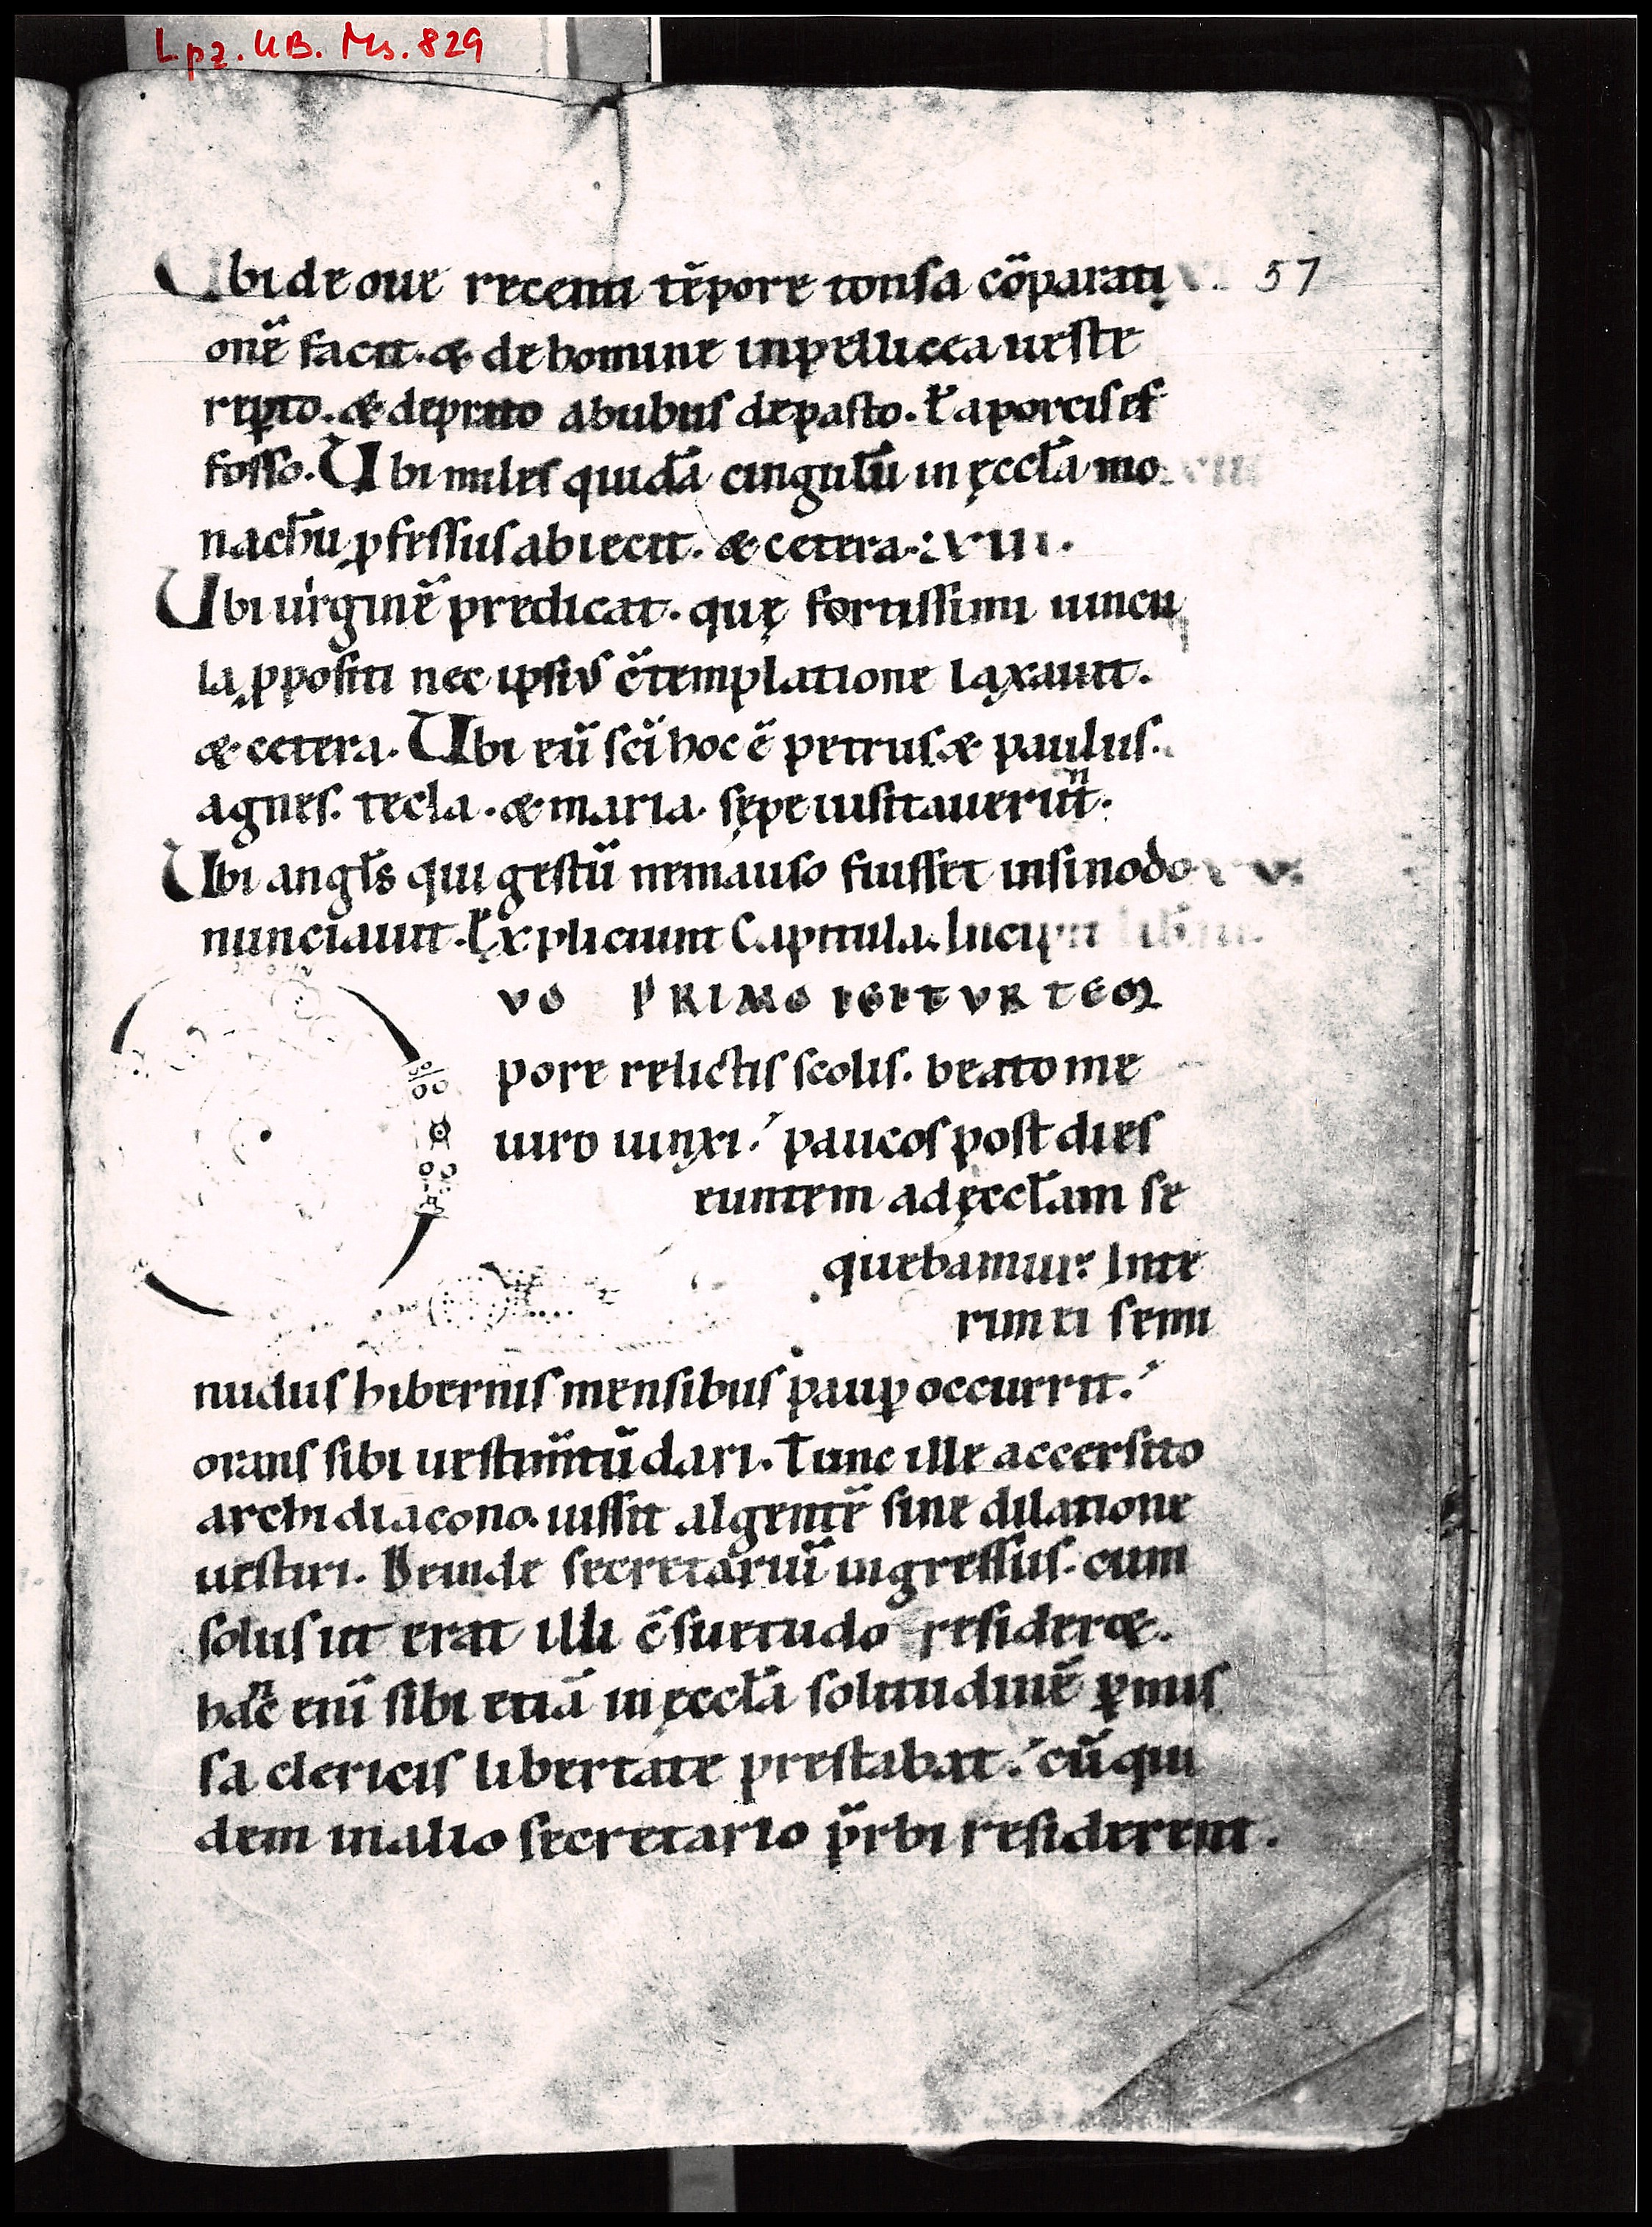 Lpz. UB. Ms. 829
Ubi de oue recenti tēpore tonsa cōparati 57
onē facit. & de homine in pellicea ueste
rep̱to. & de prato a bubus depasto. ł a porcis ef
fosso. Ubi miles quidā cingulū in ęccłā mo
nachū ꝓfessus abiecit. & cetera. VIII.
Ubi uirginē predicat. quę fortissimi uincu
la ꝓpositi nec ipsiuſ c̄templatione laxauit.
& cetera. Ubi eū sc̄i hoc ē petrus & paulus.
agnes. tecla. & maria. sępe uisitauerunt.
Ubi angłs qui gestū nemauso fuisset in sinodo
nunciauit. Expliciunt Capitula. Incipit lib
VO PRIMO IGITVR TEM
pore relictis scolis. beato me
uiro uinxi. paucos post dies
euntem ad ęccłam se
quebamur. Inte
rim ei semi
nudus hibernis mensibus paup̱ occurrit.
orans sibi uestim̄tū dari. Tunc ille accersito
archidiacono. iussit algentē sine dilatione
uestiri. Deinde secretariū ingressus. cum
solus ut erat illi c̄suetudo resider&.
hanc enī sibi etiā in ęccłā solitudinē p̱mis
sa clericis libertate prestabat. cū qui
dem in alio secretario p̄rbi residerent.